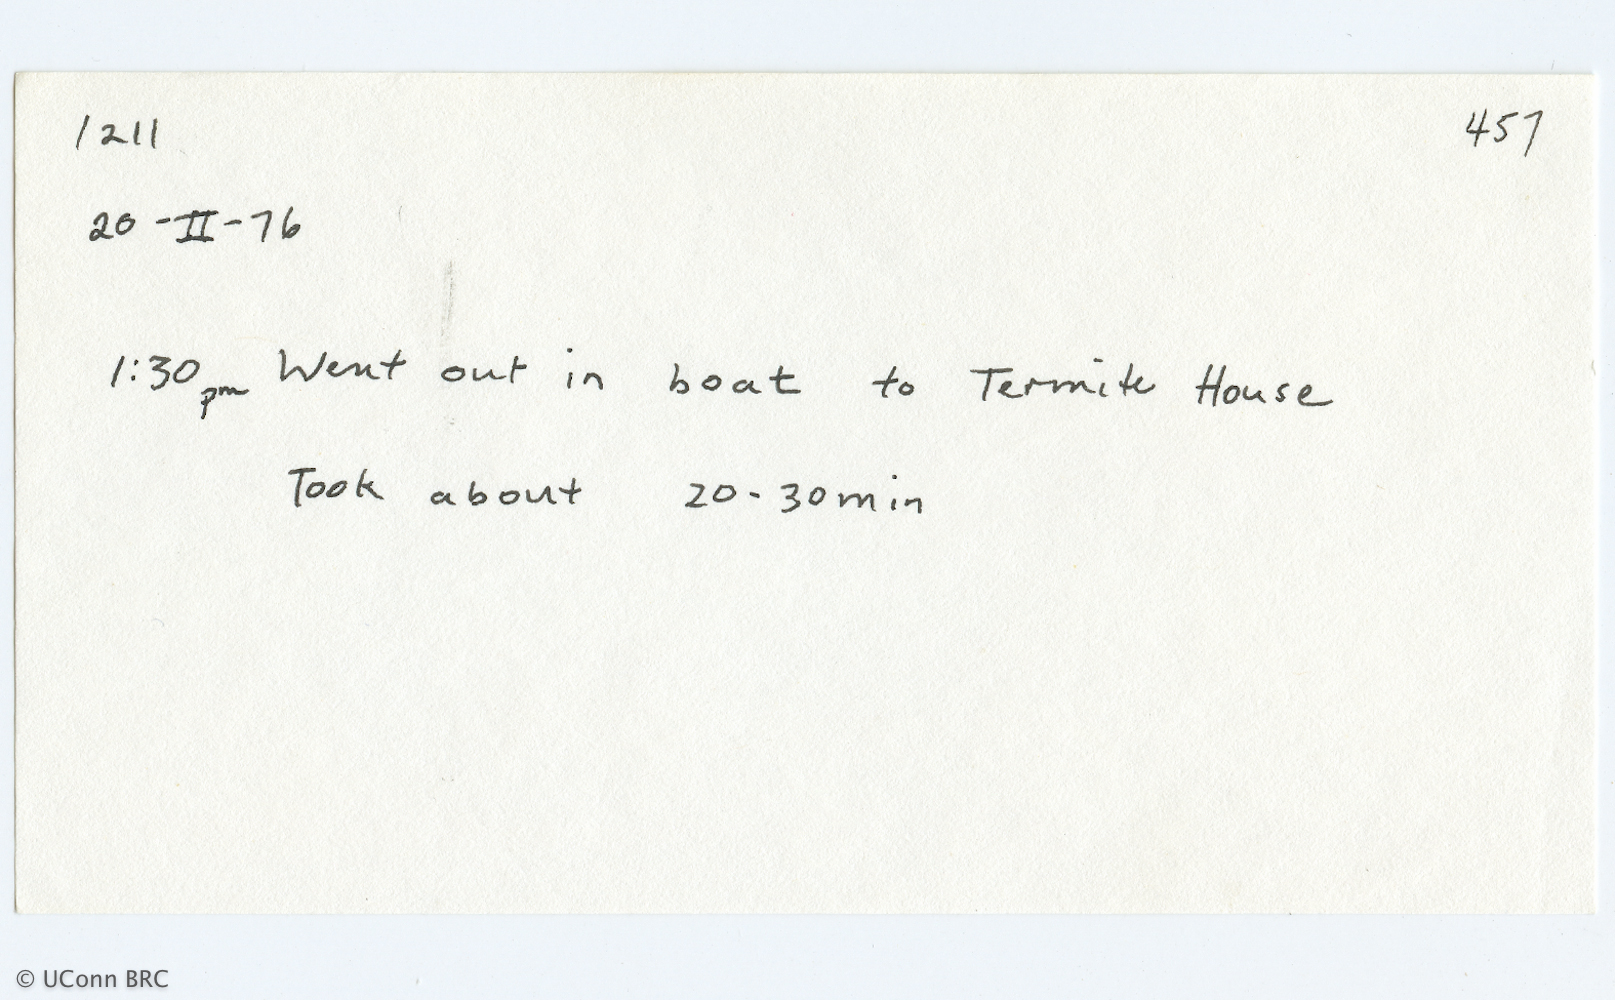 1211 457
20-II-76
1:30pm Went out in boat to Termite House
Took about 20-30min
© UConn BRC